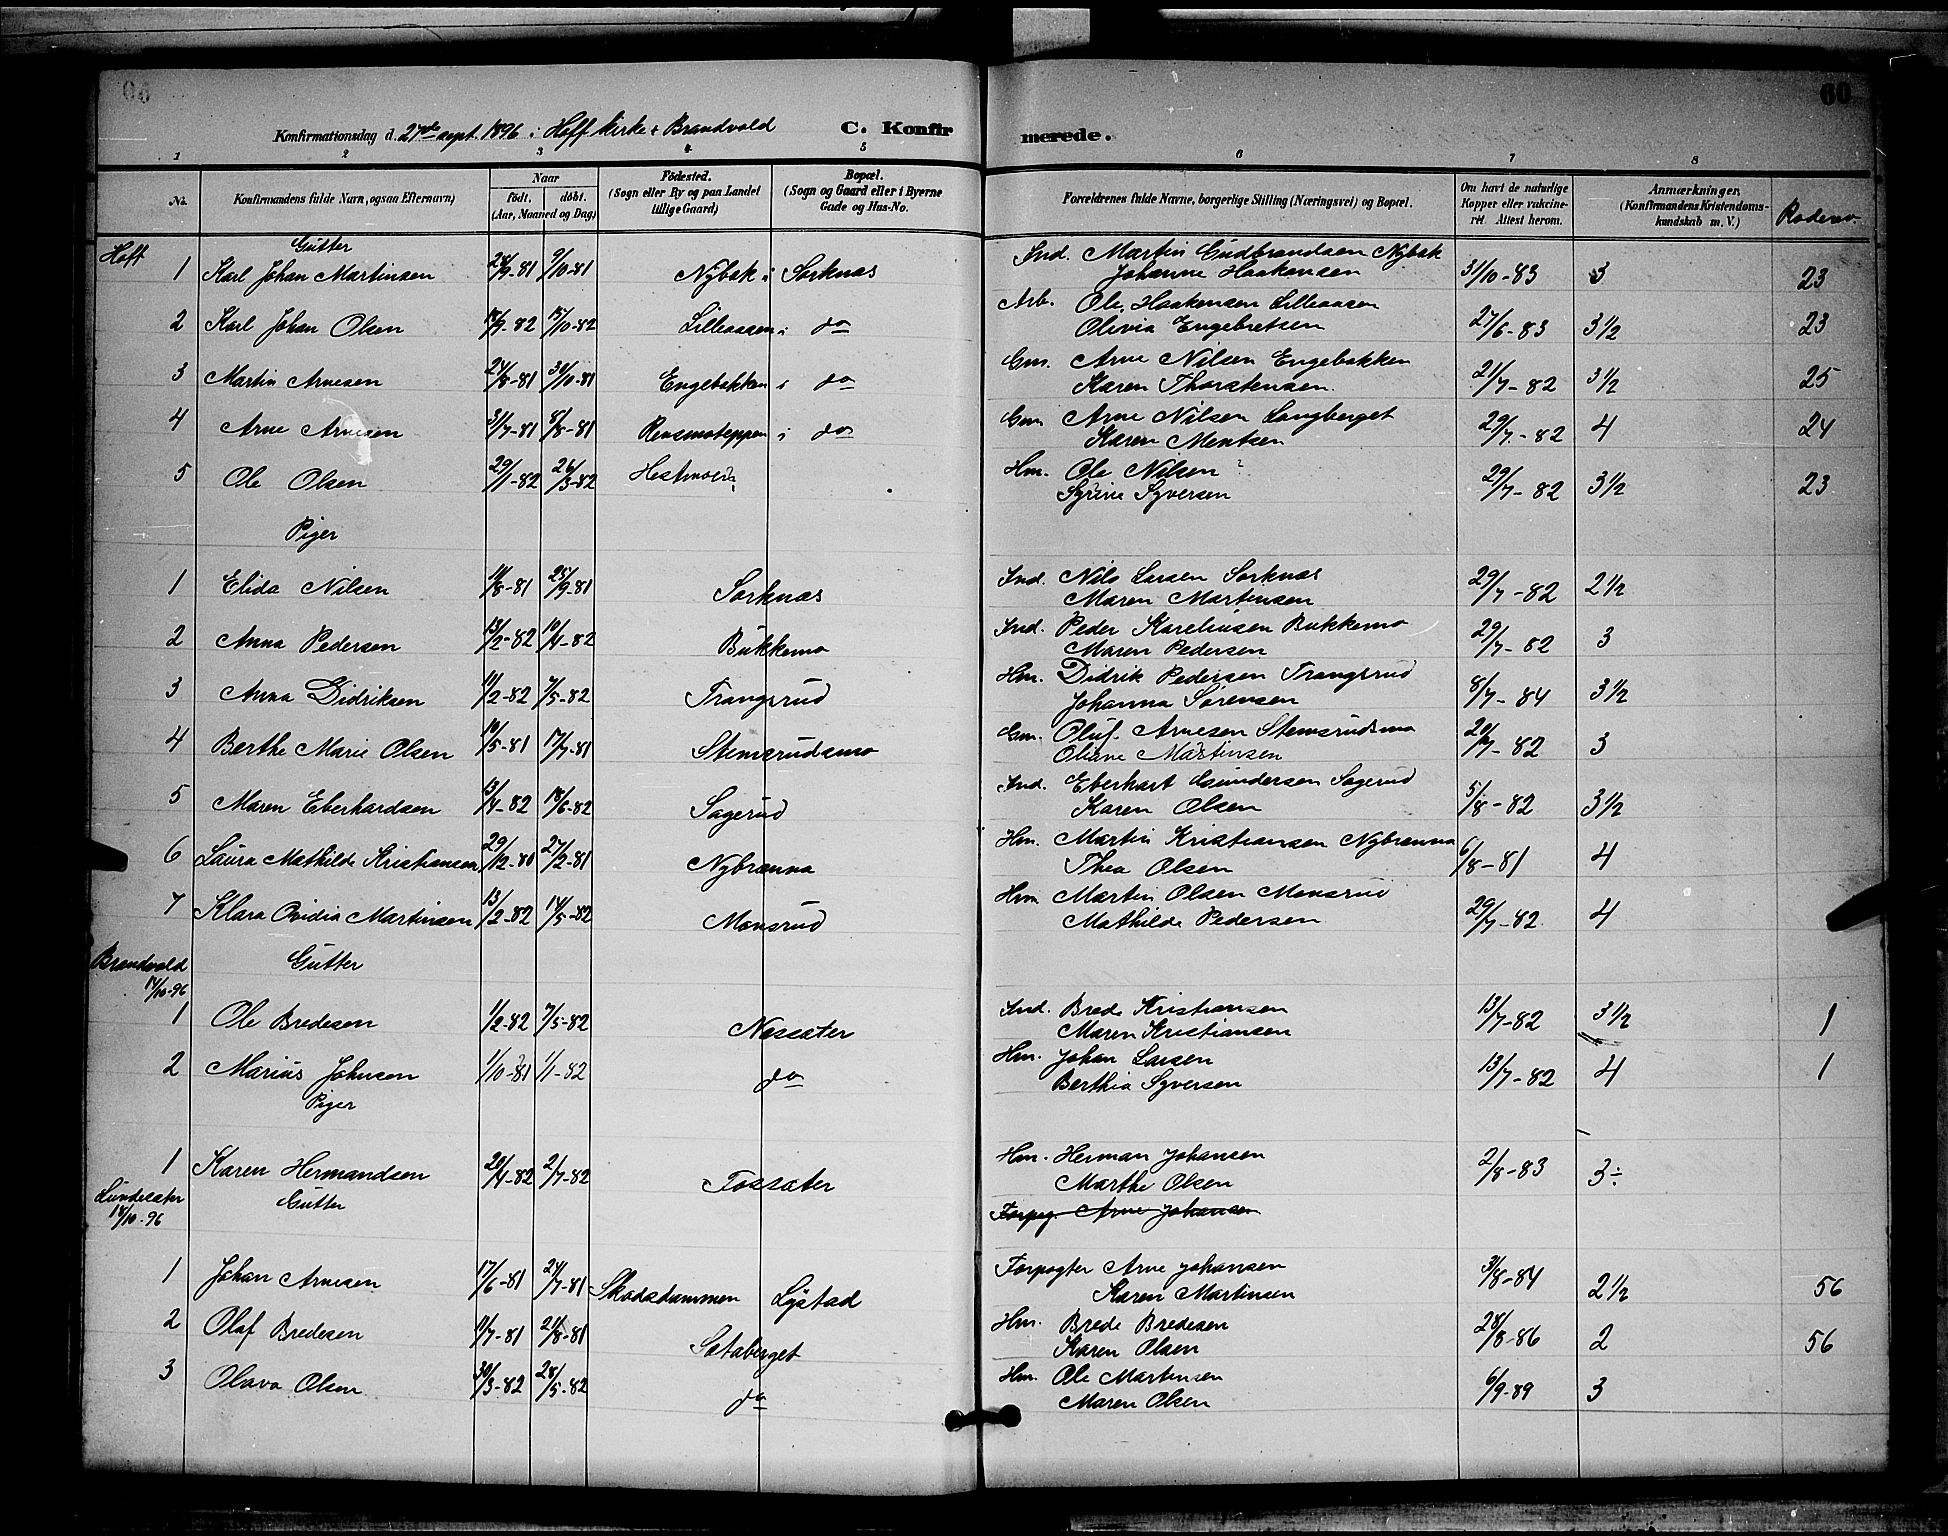 60
Konfirmationsdag d. 27de sept. 1896 i Hoff kirke & Brandvold C. Konfirmerede.
1 2 3 4 5 6 7 8
No. Konfirmandens fulde Navn, ogsaa Efternavn) Naar födt. döbt. (Aar, Maaned og Dag) Födested. (Sogn eller By og paa Landet tillige Gaard) Bopæl. (Sogn og Gaard eller i Byerne Gade og Hus-No. Forældrenes fulde Navne, borgerlige Stilling (Næringsvei) og Bopæl. Om havt de naturlige Kopper eller vakcineret. Attest herom. Anmærkninger, (Konfirmandens Kristendomskundskab m. V.) Rodeno.
Hoff Gutter Ind. Martin Gudbrandsen Nybak
1 Karl Johan Martinsen 28/9-81 9/10-81 Nybak i Sorknæs Johanne Haakensen 31/10-83 3 23
Arb. Ole Haakensen Lilleaasen
2 Karl Johan Olsen /9 82 15/10-82 Lilleaasen i do Olivia Engebretsen 27/6-83 3 1/2 23
Gm. Arne Nilsen Engebakken
3 Martin Arnesen 24/8-81 30/10-81 Engebakken i do Karen Thorstensen 21/7-82 3 1/2 25
Gm Arne Nilsen Langberget
4 Arne Arnesen 31/7-81 8/8-81 Rensmoteppen i do Karen Mentsen 29/7-82 4 24
Hm. Ole Nilsen
5 Ole Olsen 29/1-82 26/3-82 Hestmoen Syrine Syversen 29/7-82 3 1/2 23
Piger
1 Elida Nilsen 11/8-81 25/9-81 Sorknæs Ind. Nils Larsen Sorknæs
Maren Martinsen 29/7-82 2 1/2
2 Anna Pedersen 13/2-82 10/4-82 Bukkemo Ind. Peder Karelinsen Bukkemo
Maren Pedersen 29/7-82 3
3 Anna Didriksen 11/2-82 7/5-82 Trangsrud Hm. Didrik Pedersen Trangsrud
Johanna Sørensen 8/7-84 3 1/2
4 Berthe Marie Olsen 10/5-81 17/7-81 Stemsrudsmo Gm. Oluf Arnesen Stemsrudsmo
Oliane Martinsen 20/7-82 3
5 Maren Eberhardsen 13/4-82 18/6-82 Sagerud Ind. Eberhart Gundersen Sagerud
Karen Olsen 5/8-82 3 1/2
6 Laura Mathilde Kristiansen 29/12-80 27/2-81 Nybrænna Hm. Martin Kristiansen Nybrænna
Thea Olsen 6/8-81 4
7 Klara Ovidia Martinsen 13/2-82 14/5-82 Monsrud Hm Martin Olsen Monsrud
Mathilde Pedersen 29/7-82 4
Brandvold Gutter
/10-96
1 Ole Bredesen 1/2-82 7/5-82 Næssæter Ind. Brede Kristiansen
Maren Kristiansen 13/7-82 3 1/2 1
2 Marius Johnsen 1/10-81 1/1-82 do Hm. Johan Larsen
Berthia Syversen 13/7-82 4 1
Piger
1 Karen Hermandsen 20/4-82 2/7-82 Fossæter Hm. Herman Johansen
Marthe Olsen 2/8-83 3÷
Lundesæter Gutter Forpag. Arne Johansen
18/10-96
1 Johan Arnesen 17/6-81 24/7-81 Skadsdammen Lystad Forpagter Arne Johansen
Karen Martinsen 31/8-84 2 1/2 56
2 Olaf Bredesen 11/7-81 21/8-81 Sætaberget Hm. Brede Bredesen
Karen Olsen 28/8-86 2 56
3 Olava Olsen 30/3-82 28/5-82 do Hm. Ole Martinsen
Maren Olsen 6/9-89 3